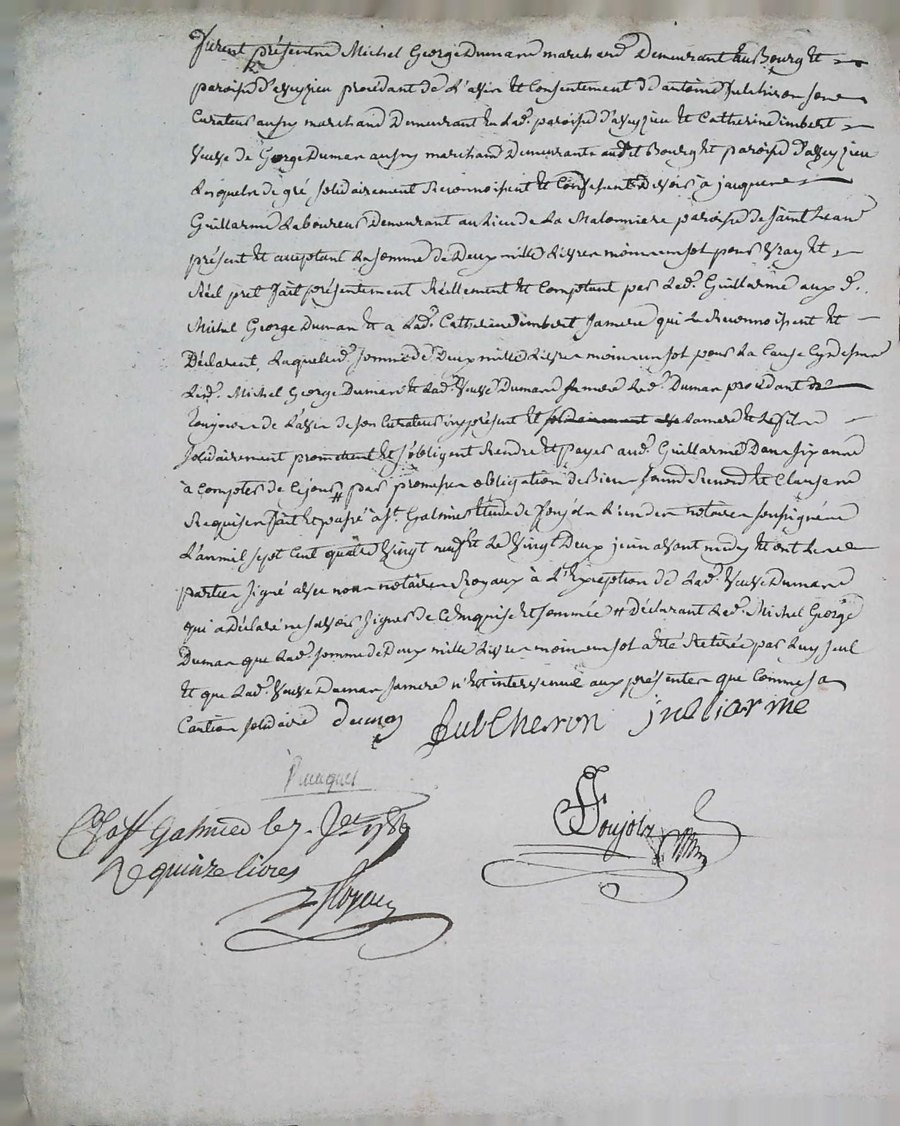 furent présentne Michel George Duman marchand Demeurant au Bourg et
paroisse d'aveyzieu procédant de L'avis et Consentement d'antoine fulchiron son
Curateur aussy marchand Demeurant en Lad. paroisse d'aveyzieu et Catherine imbert
veuve de George Duman aussy marchand Demeurante audit Bourg et paroisse d'aveyzieu
Lesquels de gré solidairement Reconnoissent et Confessent Devoir à jacques
Guillarme Laboureur Demeurant au Lieu de La Malonniere paroisse de saint
présent et acceptant La somme de Deux mille Livres moins un sol pour vray et
Réel pret fait présentement Réellement et Comptant par Led. Guillarme aux d.
Michel George Duman et a Lad. Catherine imbert sa mere qui Le Reconnoissent et
Déclarent, Laquelle d. somme de Deux mille Livres moins un sol pour La Cause Cy dessus
Led. Michel George Duman et Lad. veuve Duman sa mere Led. Duman procédant
toujours de L'avis de son Curateur icy présent et solidairement La mere et Le fils
solidairement promettent et s'obligent Rendre et payer aud. Guillarme Dans six ans
à Compter de Ce jour # par promesse obligation de Biens soumis Renond et Clauses
Requises fait et passé à St. Galmier Etude de Ponjols L'un des notaires soussignés
L'an mil sept Cent quatre vingt neuf et Le vingt Deux juin avant midy et ont Les
parties signé avec nous notaires Royaux à L'Exception de Lad. veuve Duman
qui a Déclaré ne savoir signer de Ce Enquise et sommée # Déclarant Led. Michel George
Duman que Lad. somme de Deux mille Livres moins un sol a été Retirée par Luy seul
Et que Lad. veuve Duman sa mere n'Est intervenue aux présentes que Comme sa
Caution solidaire duman fulcheron juliarme
Galmier le 7. Jet 1789
quinze livres